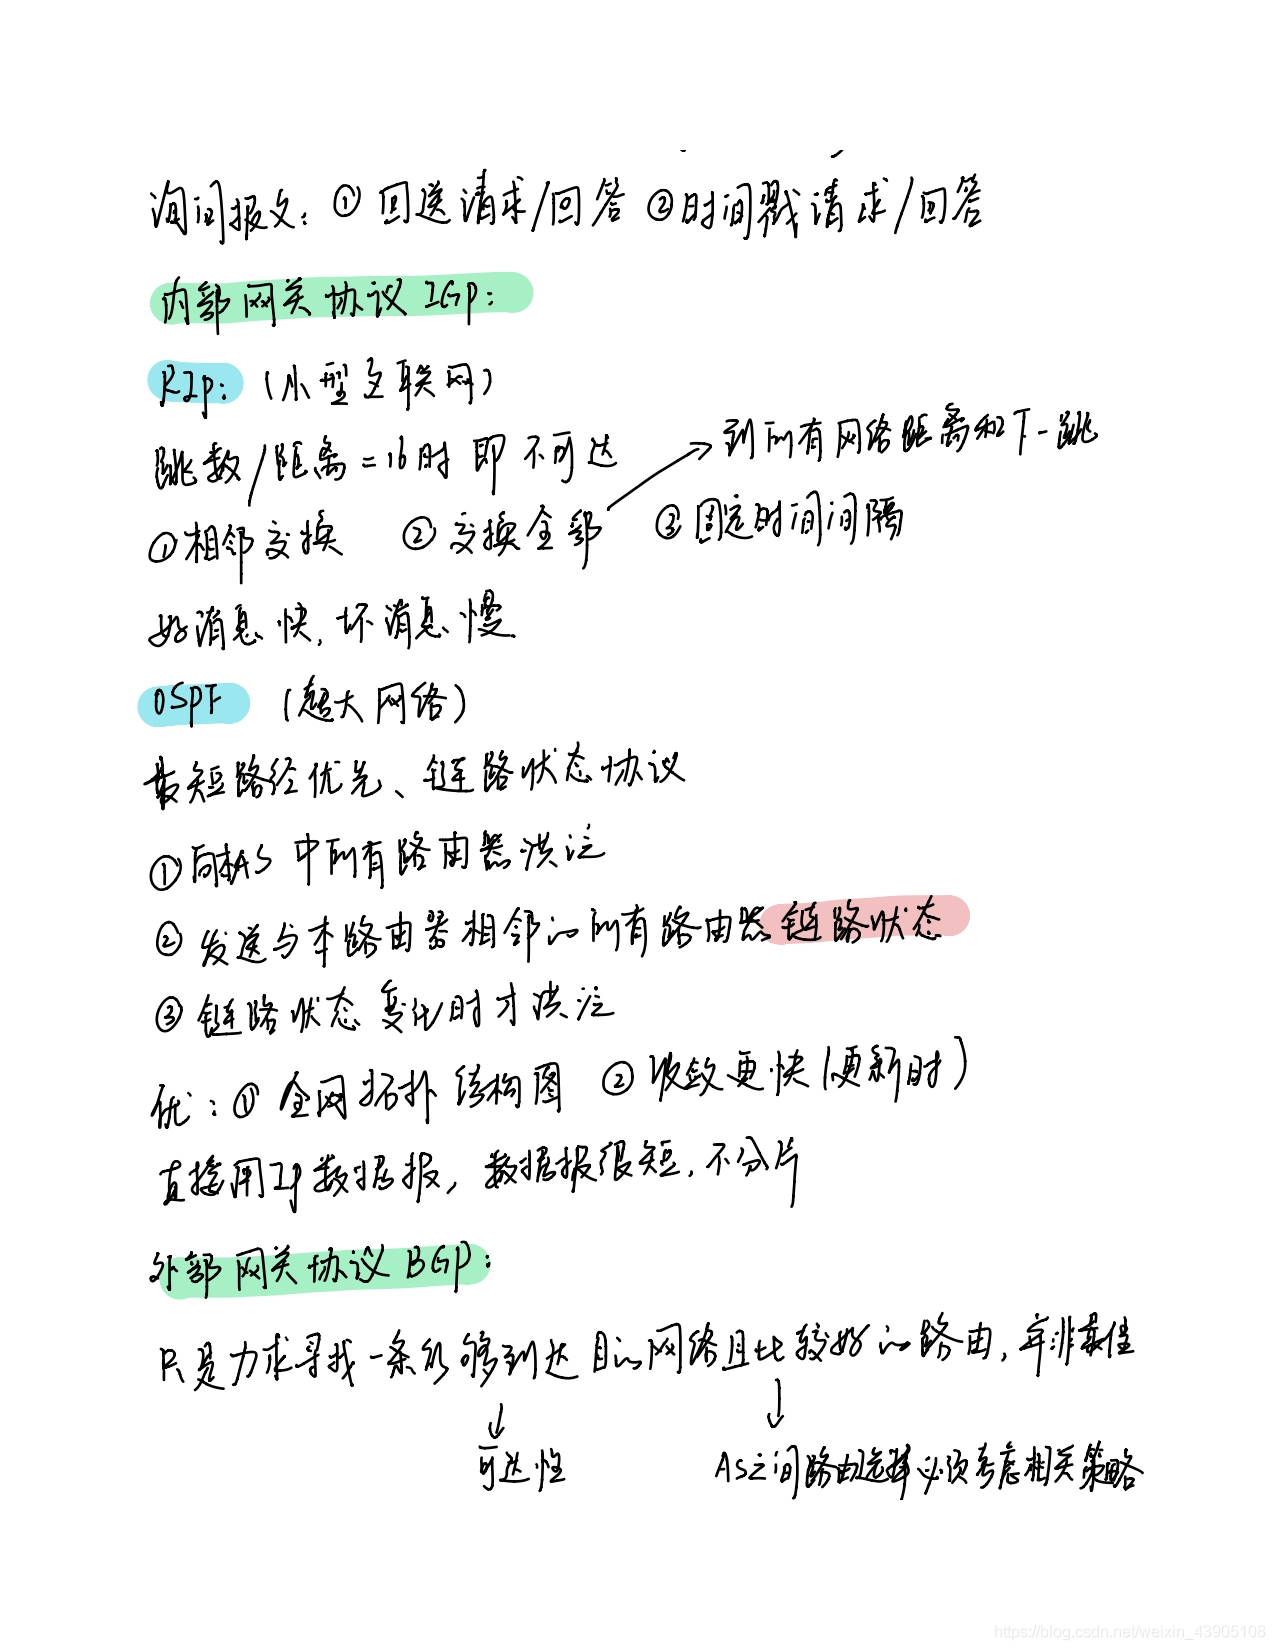 询问报文：① 回送请求/回答 ②时间戳请求/回答
内部网关协议 IGP：
RIP：（小型互联网）
跳数/距离=16时 即不可达
到所有网络距离和下一跳
①相邻交换 ②交换全部 ③固定时间间隔
好消息快，坏消息慢
OSPF （超大网络）
最短路径优先、链路状态协议
①向本AS 中所有路由器洪泛
②发送与本路由器相邻的所有路由器链路状态
③链路状态变化时才洪泛
优：① 全网拓扑结构图 ②收敛更快（更新时）
直接用IP数据报，数据报很短，不分片
外部网关协议 BGP：
只是力求寻找一条能够到达目的网络且比较好的路由，并非最佳
可达性
AS之间路由选择必须考虑相关策略
https://blog.csdn.net/weixin_43905108